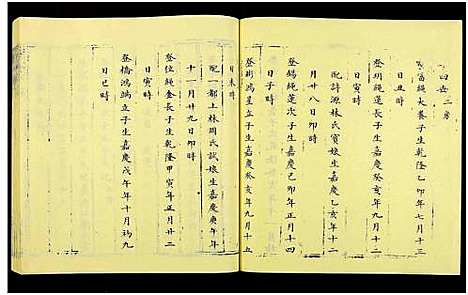 四岳三房
富绳大养子生乾隆乙卯年七月十三
日丑時
登玥绳蓬子生嘉慶癸亥年九月十二
配詩源林氏寶娘生嘉慶乙亥年
月廿八日卯時
登錫绳蓬次子生嘉慶己卯年正月十四
日子時
登彬鴻星立子生嘉慶癸亥年九月十五
日未時
配一都上林周氏試娘生嘉慶庚午年
十一月廿九日卯時
登位绳金長子生乾隆甲寅年正月廿三
日寅時
登橋鴻端立子生嘉慶戊午年十月初九
日巳時